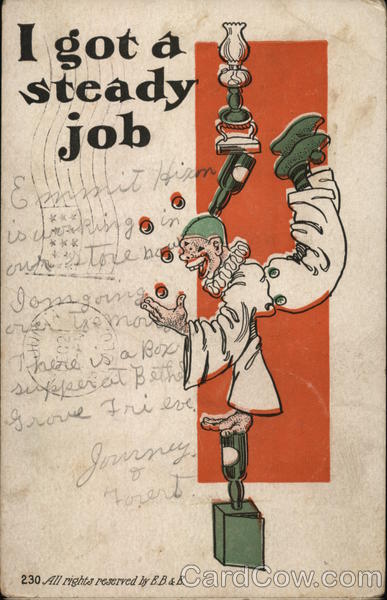 I got a
steady
job
Emmit Hixon
is working in
our store now
I am going
over
There is a Box
supper at Bethel
Grove Fri eve.
Journey
230 All rights reserved by E.B & E.
CardCow.com